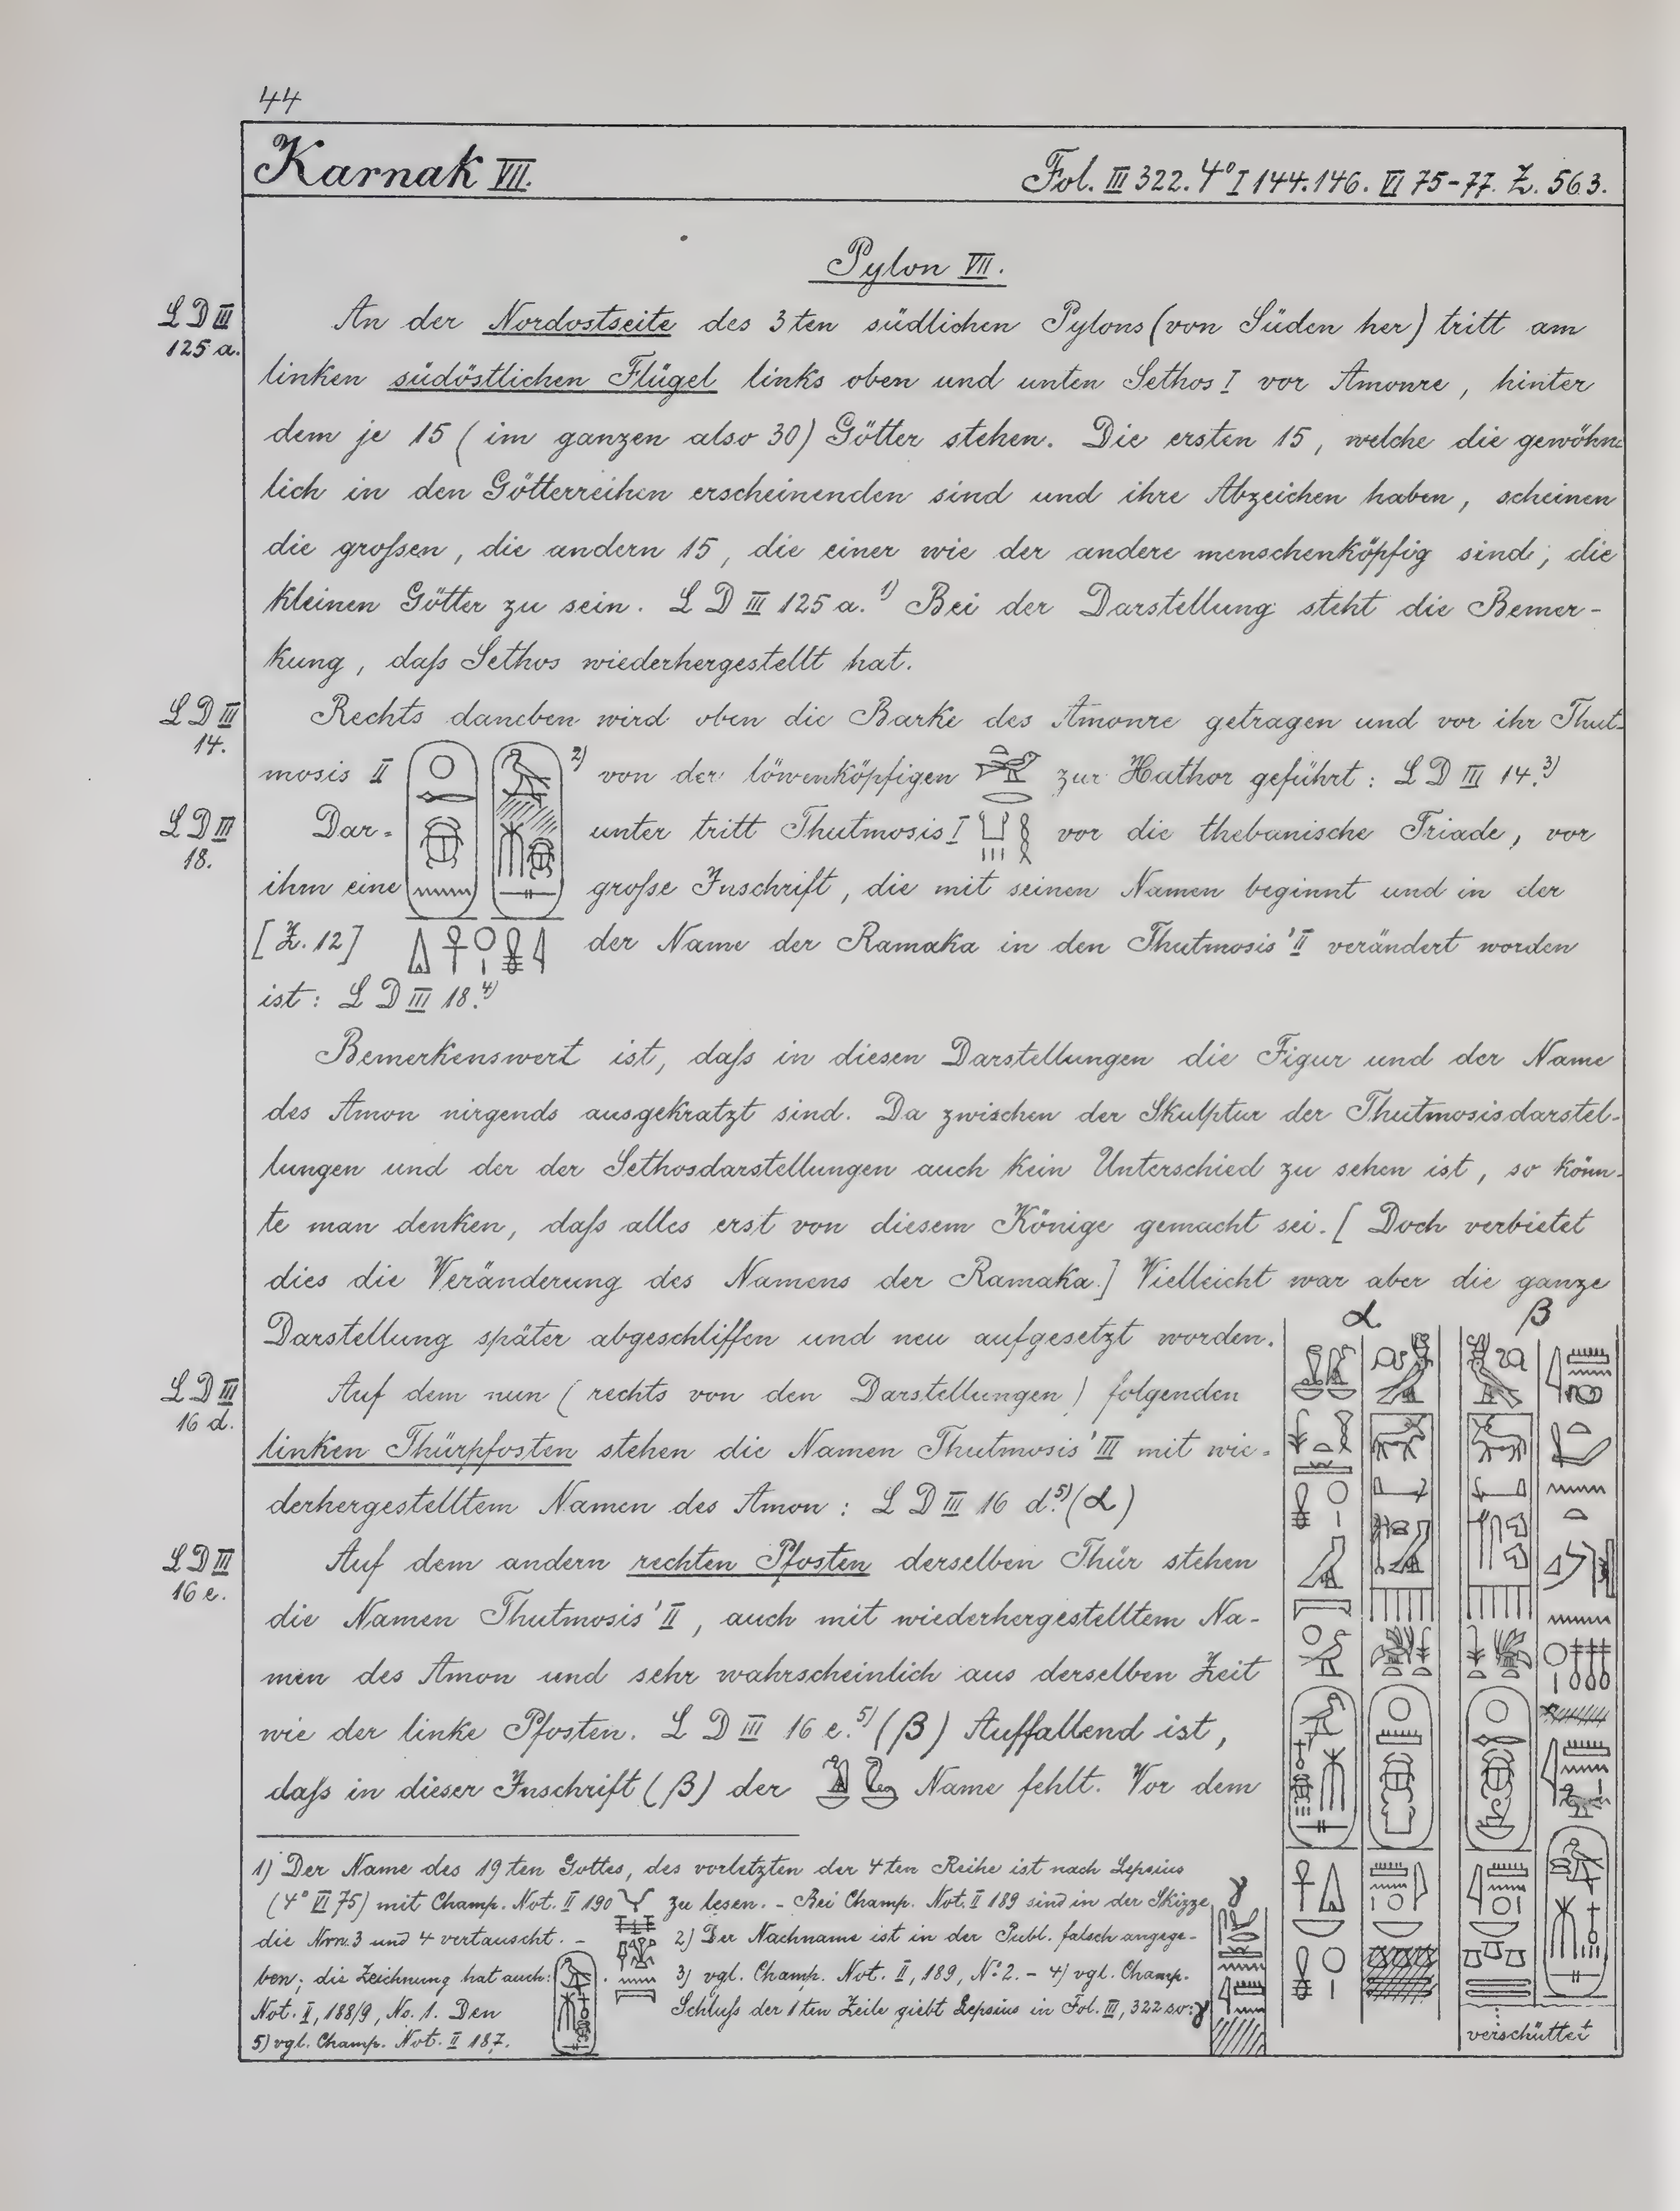 44
Karnak VII.
Fol. III 322. 4° I 144.146. VI 75-77. Z. 563.
Pylon VII.
L D III
125 a.
An der Nordostseite des 3ten südlichen Pylons (von Süden her) tritt am
linken südöstlichen Flügel links oben und unten Sethos I vor Amonre, hinter
dem je 15 (im ganzen also 30) Götter stehen. Die ersten 15, welche die gewöhn-
lich in den Götterreihen erscheinenden sind und ihre Abzeichen haben, scheinen
die großen, die andern 15, die einer wie der andere menschenköpfig sind, die
kleinen Götter zu sein. L D III 125 a. 1) Bei der Darstellung steht die Bemer-
kung, daß Sethos wiederhergestellt hat.
L D III
14.
Rechts daneben wird oben die Barke des Amonre getragen und vor ihr Thut-
mosis II 2) von der löwenköpfigen zur Hathor geführt: L D III 14. 3)
L D III
18.
Dar- unter tritt Thutmosis I vor die thebanische Triade, vor
ihm eine große Inschrift, die mit seinen Namen beginnt und in der
[Z. 12] der Name der Ramaka in den Thutmosis' II verändert worden
ist: L D III 18. 4)
Bemerkenswert ist, daß in diesen Darstellungen die Figur und der Name
des Amon nirgends ausgekratzt sind. Da zwischen der Skulptur der Thutmosisdarstel-
lungen und der der Sethosdarstellungen auch kein Unterschied zu sehen ist, so könn-
te man denken, daß alles erst von diesem Könige gemacht sei. [Doch verbietet
dies die Veränderung des Namens der Ramaka.] Vielleicht war aber die ganze
Darstellung später abgeschliffen und neu aufgesetzt worden.
L D III
16 d.
Auf dem nun (rechts von den Darstellungen) folgenden
linken Thürpfosten stehen die Namen Thutmosis' III mit wie-
derhergestelltem Namen des Amon: L D III 16 d. 5) (α)
L D III
16 e.
Auf dem andern rechten Pfosten derselben Thür stehen
die Namen Thutmosis' II, auch mit wiederhergestelltem Na-
men des Amon und sehr wahrscheinlich aus derselben Zeit
wie der linke Pfosten. L D III 16 e. 5) (β) Auffallend ist,
daß in dieser Inschrift (β) der Name fehlt. Vor dem
α
β
verschüttet
1) Der Name des 19ten Gottes, des vorletzten der 4ten Reihe ist nach Lepsius
(4° VI 75) mit Champ. Not. II 190 zu lesen. - Bei Champ. Not. II 189 sind in der Skizze
die Nrn. 3 und 4 vertauscht. - 2) Der Nachname ist in der Publ. falsch angege-
ben; die Zeichnung hat auch: . 3) vgl. Champ. Not. II, 189, No. 2. - 4) vgl. Champ.
Not. II, 188/9, No. 1. Den Schluß der 1ten Zeile giebt Lepsius in Fol. III, 322 so: γ
5) vgl. Champ. Not. II 187.
γ